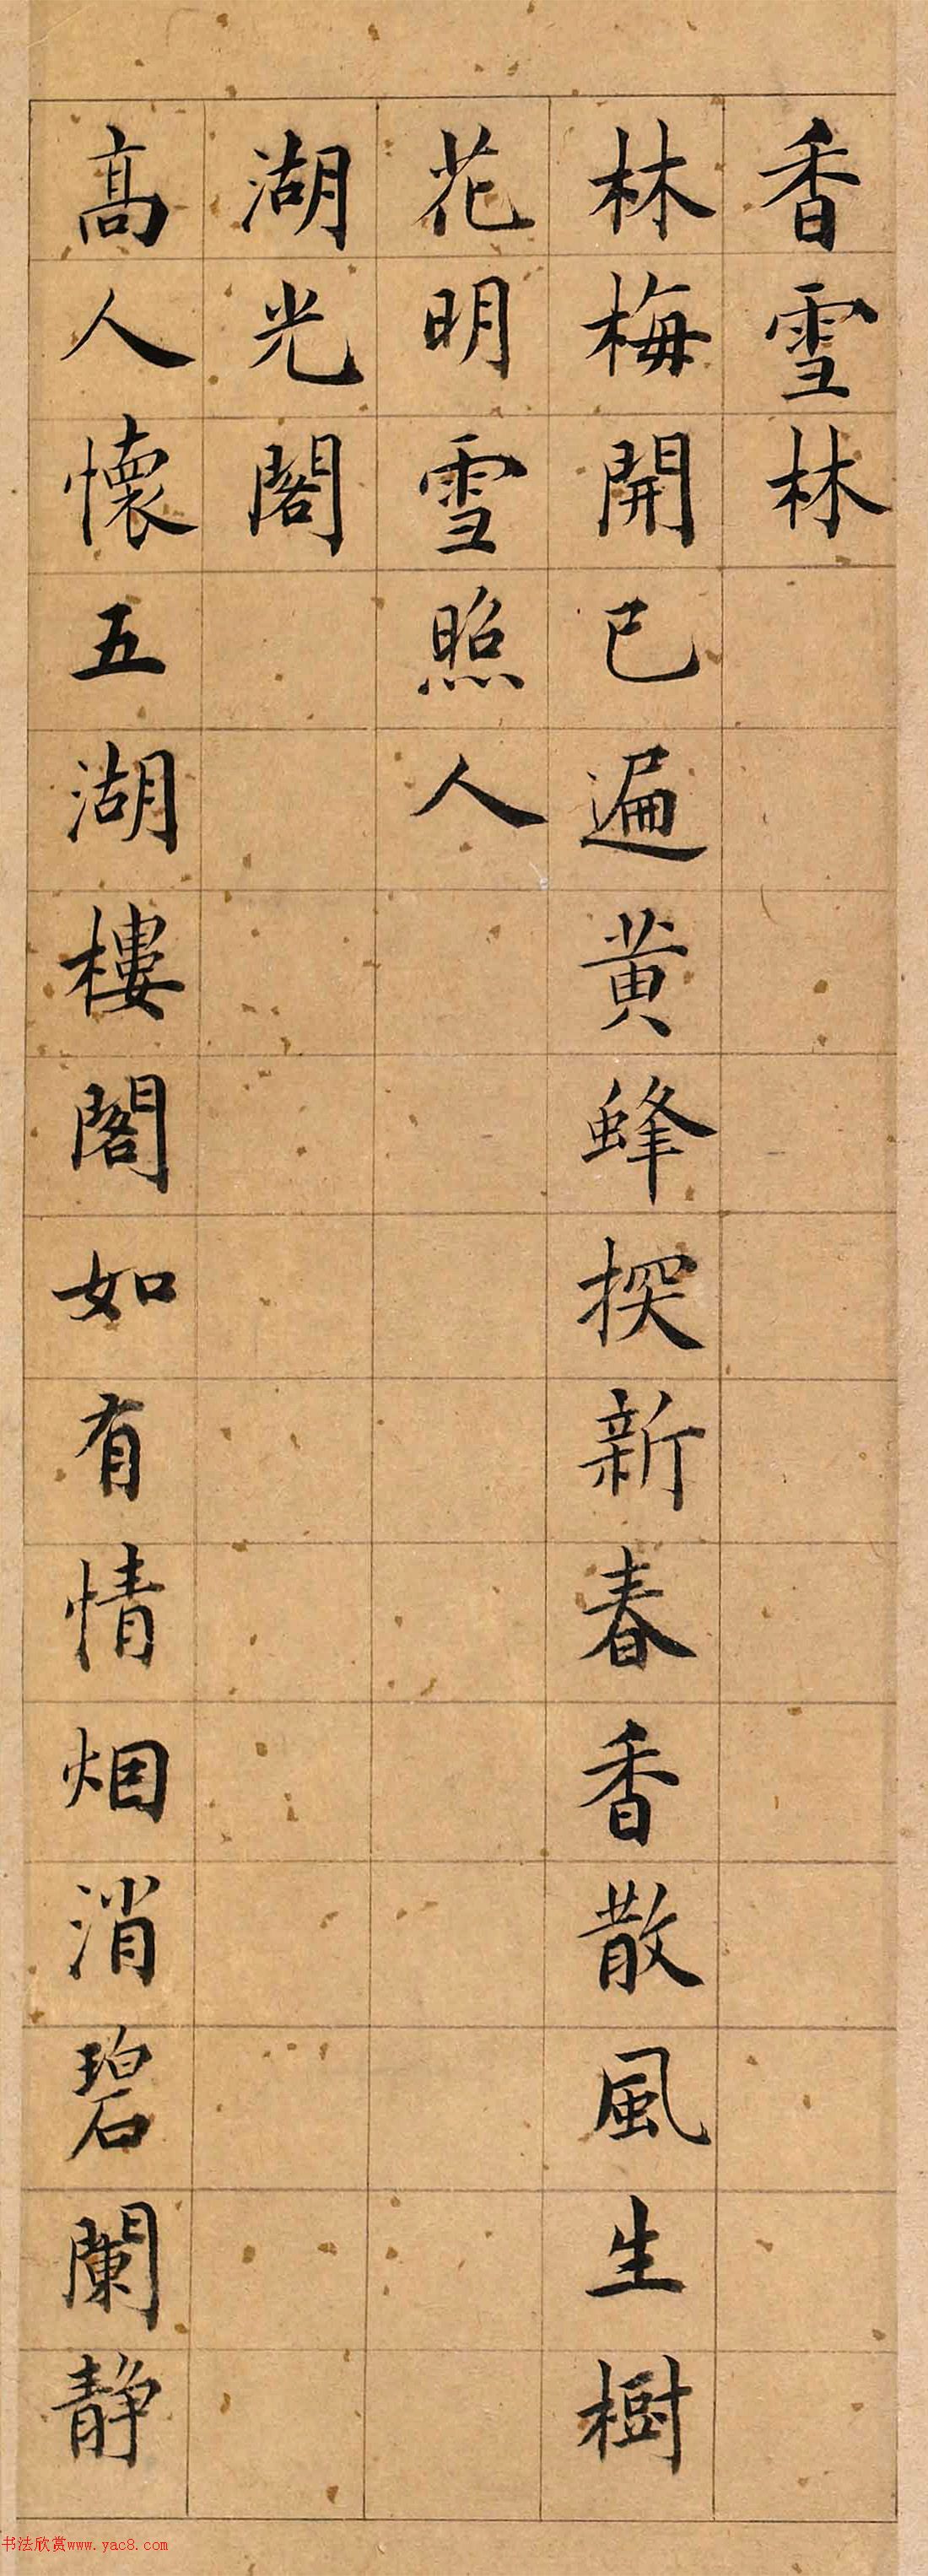 香雪林
林梅開已遍黄蜂探新春香散風生樹
花明雪照人
湖光閣
高人懷五湖樓閣如有情烟消碧闌静
书法欣赏www.yac8.com